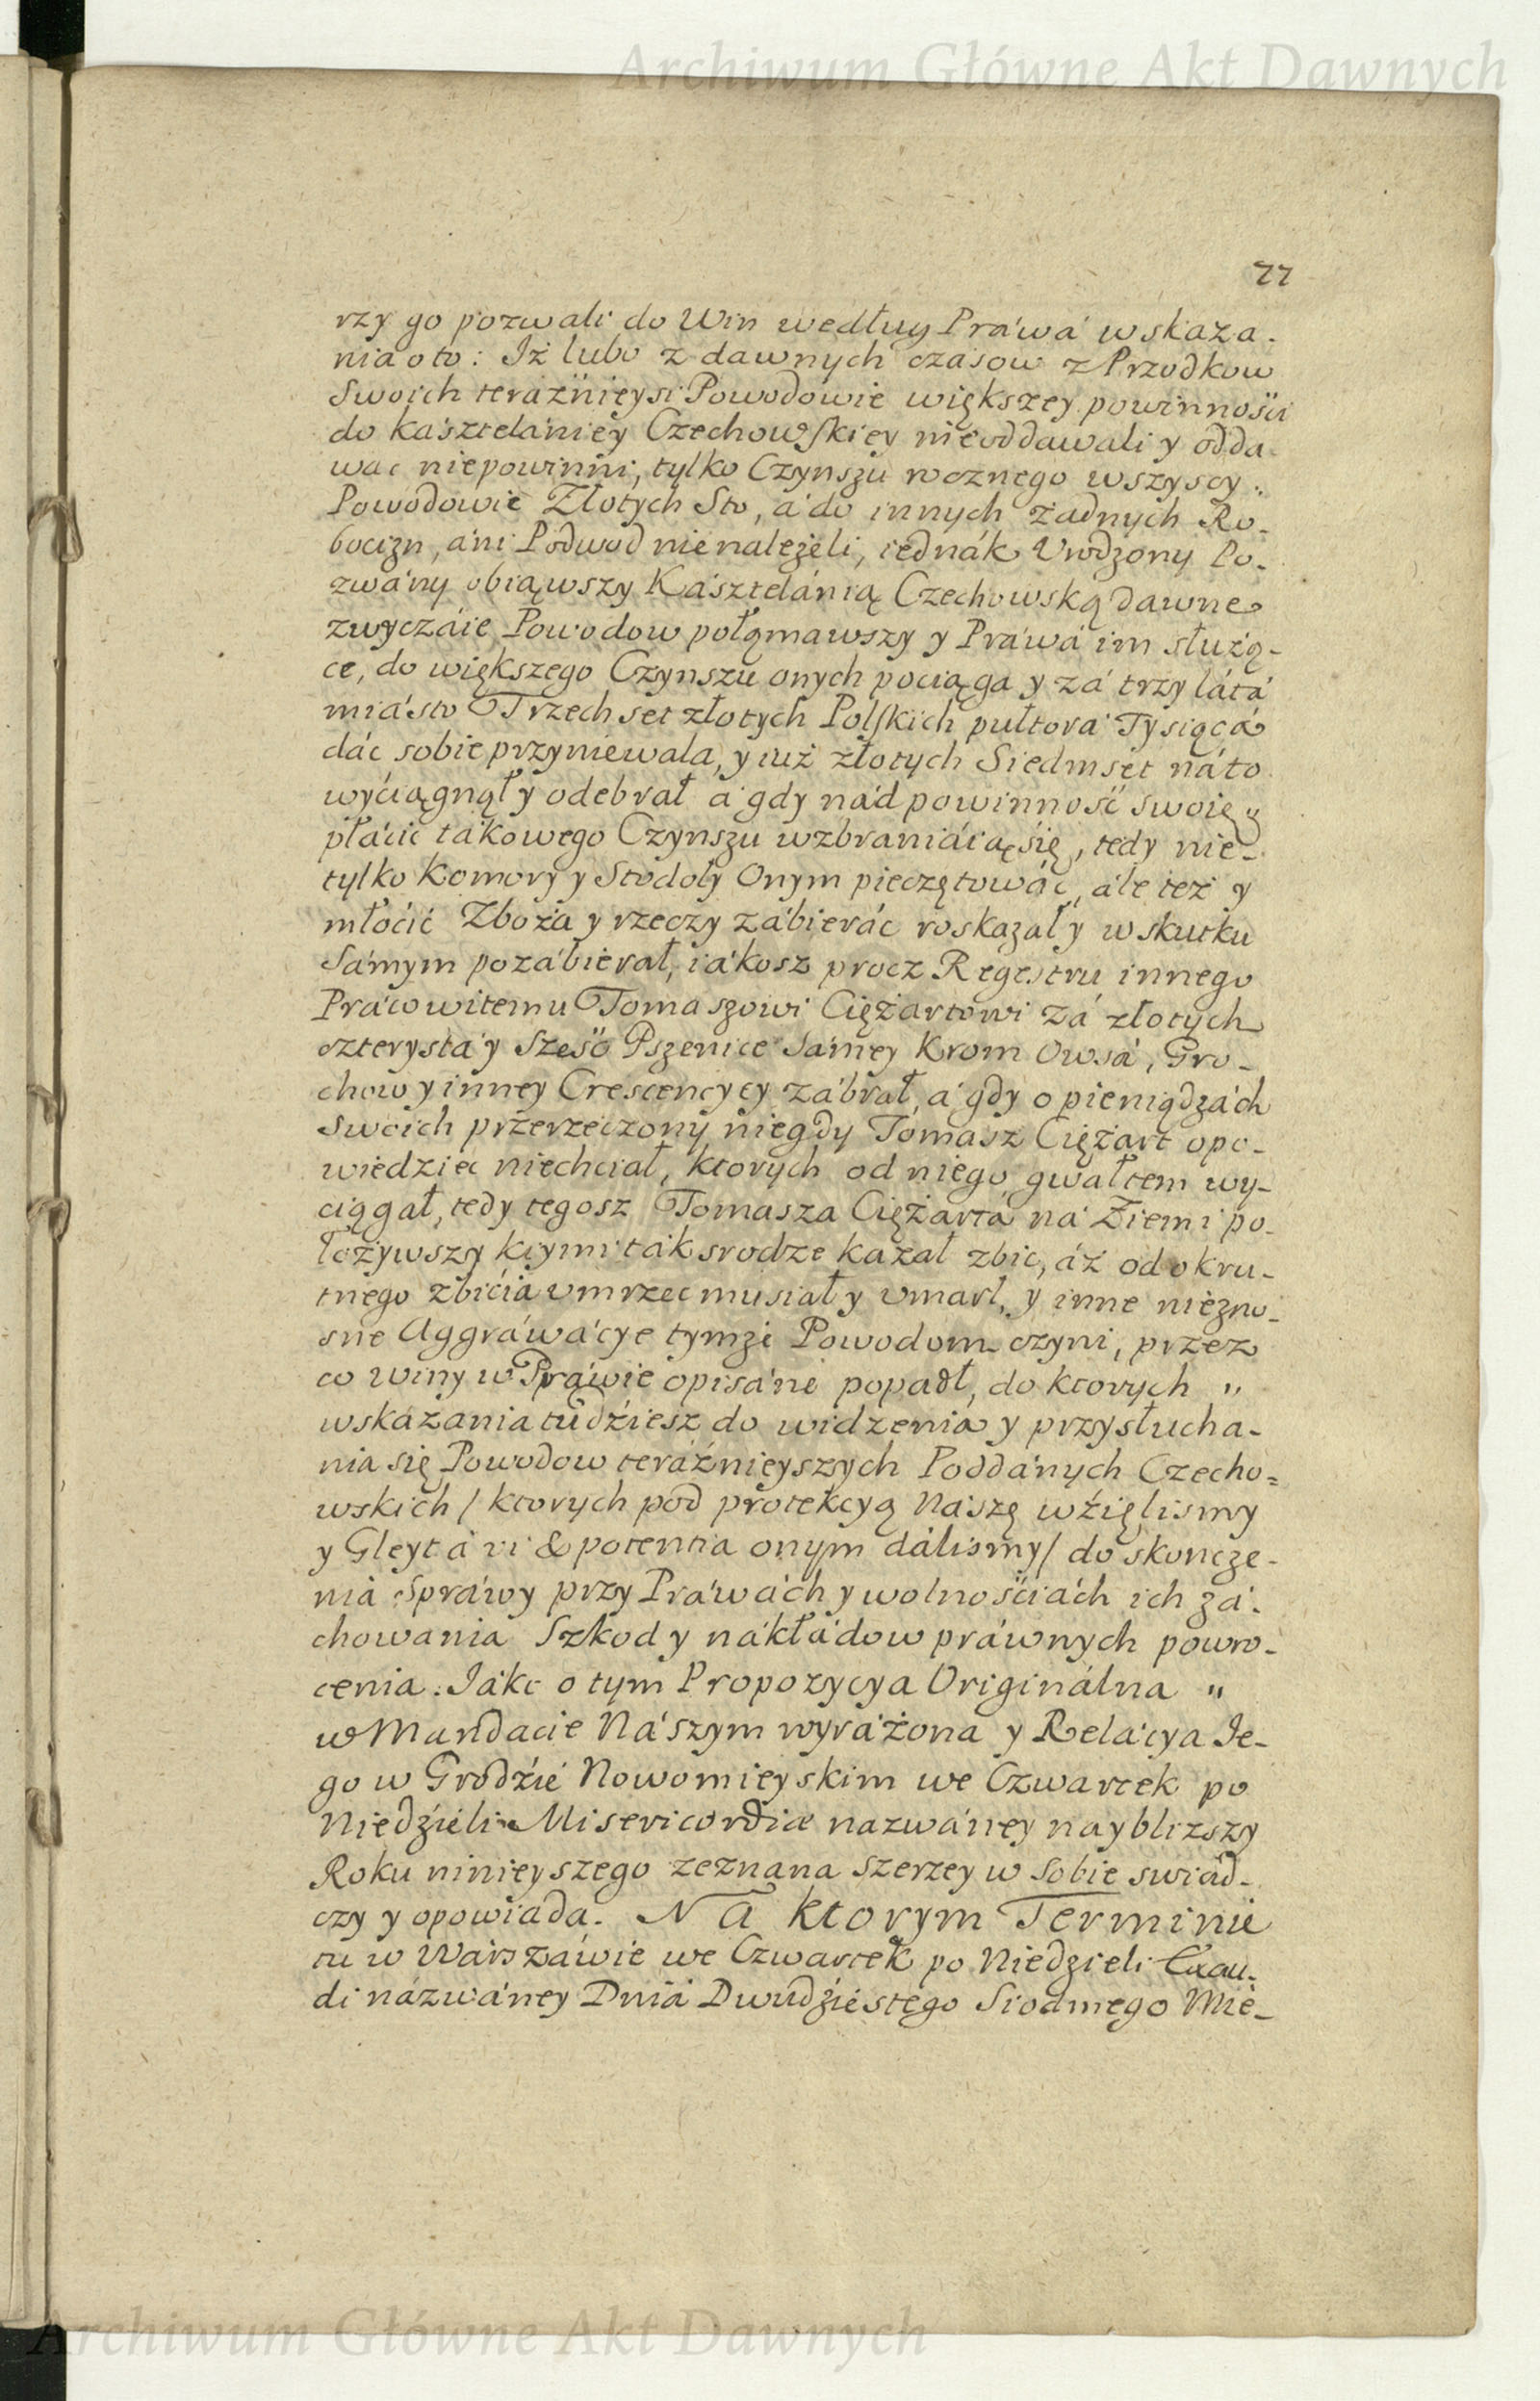 Archiwum Główne Akt Dawnych
77
rzy go pozwali do Win według Práwá wskaza-
nia o to: Iż lubo z dawnych czasow z Przodkow
Swoich teraźnieysi Powodowie większey powinności
do kásztelániey Czechowskiey nieoddawali y odda-
wac niepowinni, tylko Czynszu rocznego wszyscy "
Powodowie Złotych Sto, á do innych żadnych Ro-
bocizn, áni Podwod nienależeli, iednák Vrodzony Po-
zwány obiąwszy Kásztelánią Czechowską dawne
zwyczáie Powodow połąmawszy y Práwá im służą-
ce, do większego Czynszu onych pociąga y zá trzy látá
miásto Trzech set złotych Polskich pułtorá Tysiącá
dác sobie przyniewala, y iuż złotych Siedmset náto
wyciągnął y odebrał á gdy nád powinność swoię "
płácić tákowego Czynszu wzbraniáią się, tedy nie-
tylko Komory y Stodoły Onym pieczętowáć, ále też y
młócić Zboża y rzeczy zábieráć roskazał y w skutku
Sámym pozábierał, iákosz procz Regestru innego
Prácowitemu Tomaszowi Ciężartowi zá złotych
czterysta y Sześć Pszenice Sámey Krom Owsá, Gro-
chow y inney Crescencycy zábrał, á gdy o pieniądzách
Swoich przerzeczony niegdy Tomasz Ciężart opo-
wiedziec niechciał, ktorych od niego gwałtem wy-
ciągał, tedy tegosz Tomasza Ciężartá ná Ziemi po-
łożywszy kiymi ták srodze kazał zbic, áż od okru-
tnego zbiciá vmrzec musiał y vmarł, y inne niezno-
sne Aggráwácye tymże Powodom czyni, przez
co winy w Práwie opisáne popadł, do ktorych "
wskázania tudźiesz do widzenia y przysłucha-
nia się Powodow teráźnieyszych Poddánych Czecho-
wskich / ktorych pod protekcyą Nászę wźięlismy
y Gleyt á vi & potentia onym dálismy / do skoncze-
niá Spráwy przy Práwách y wolnościách ich zá-
chowania Szkod y nákłádow práwnych powro-
cenia. Iáko o tym Propozycya Originálna "
w Mandacie Nászym wyráżona y Relácya Ie-
go w Grodźie Nowomieyskim we Czwartek po
Niedźieli Misericordiæ nazwáney naybliższy
Roku ninieyszego zeznana szerzey w Sobie swiad-
czy y opowiada. Na ktorym Terminie
tu w Warszáwie we Czwartek po Niedzieli Exau-
di názwáney Dniá Dwudźiestego Siodmego Mie-
Archiwum Główne Akt Dawnych